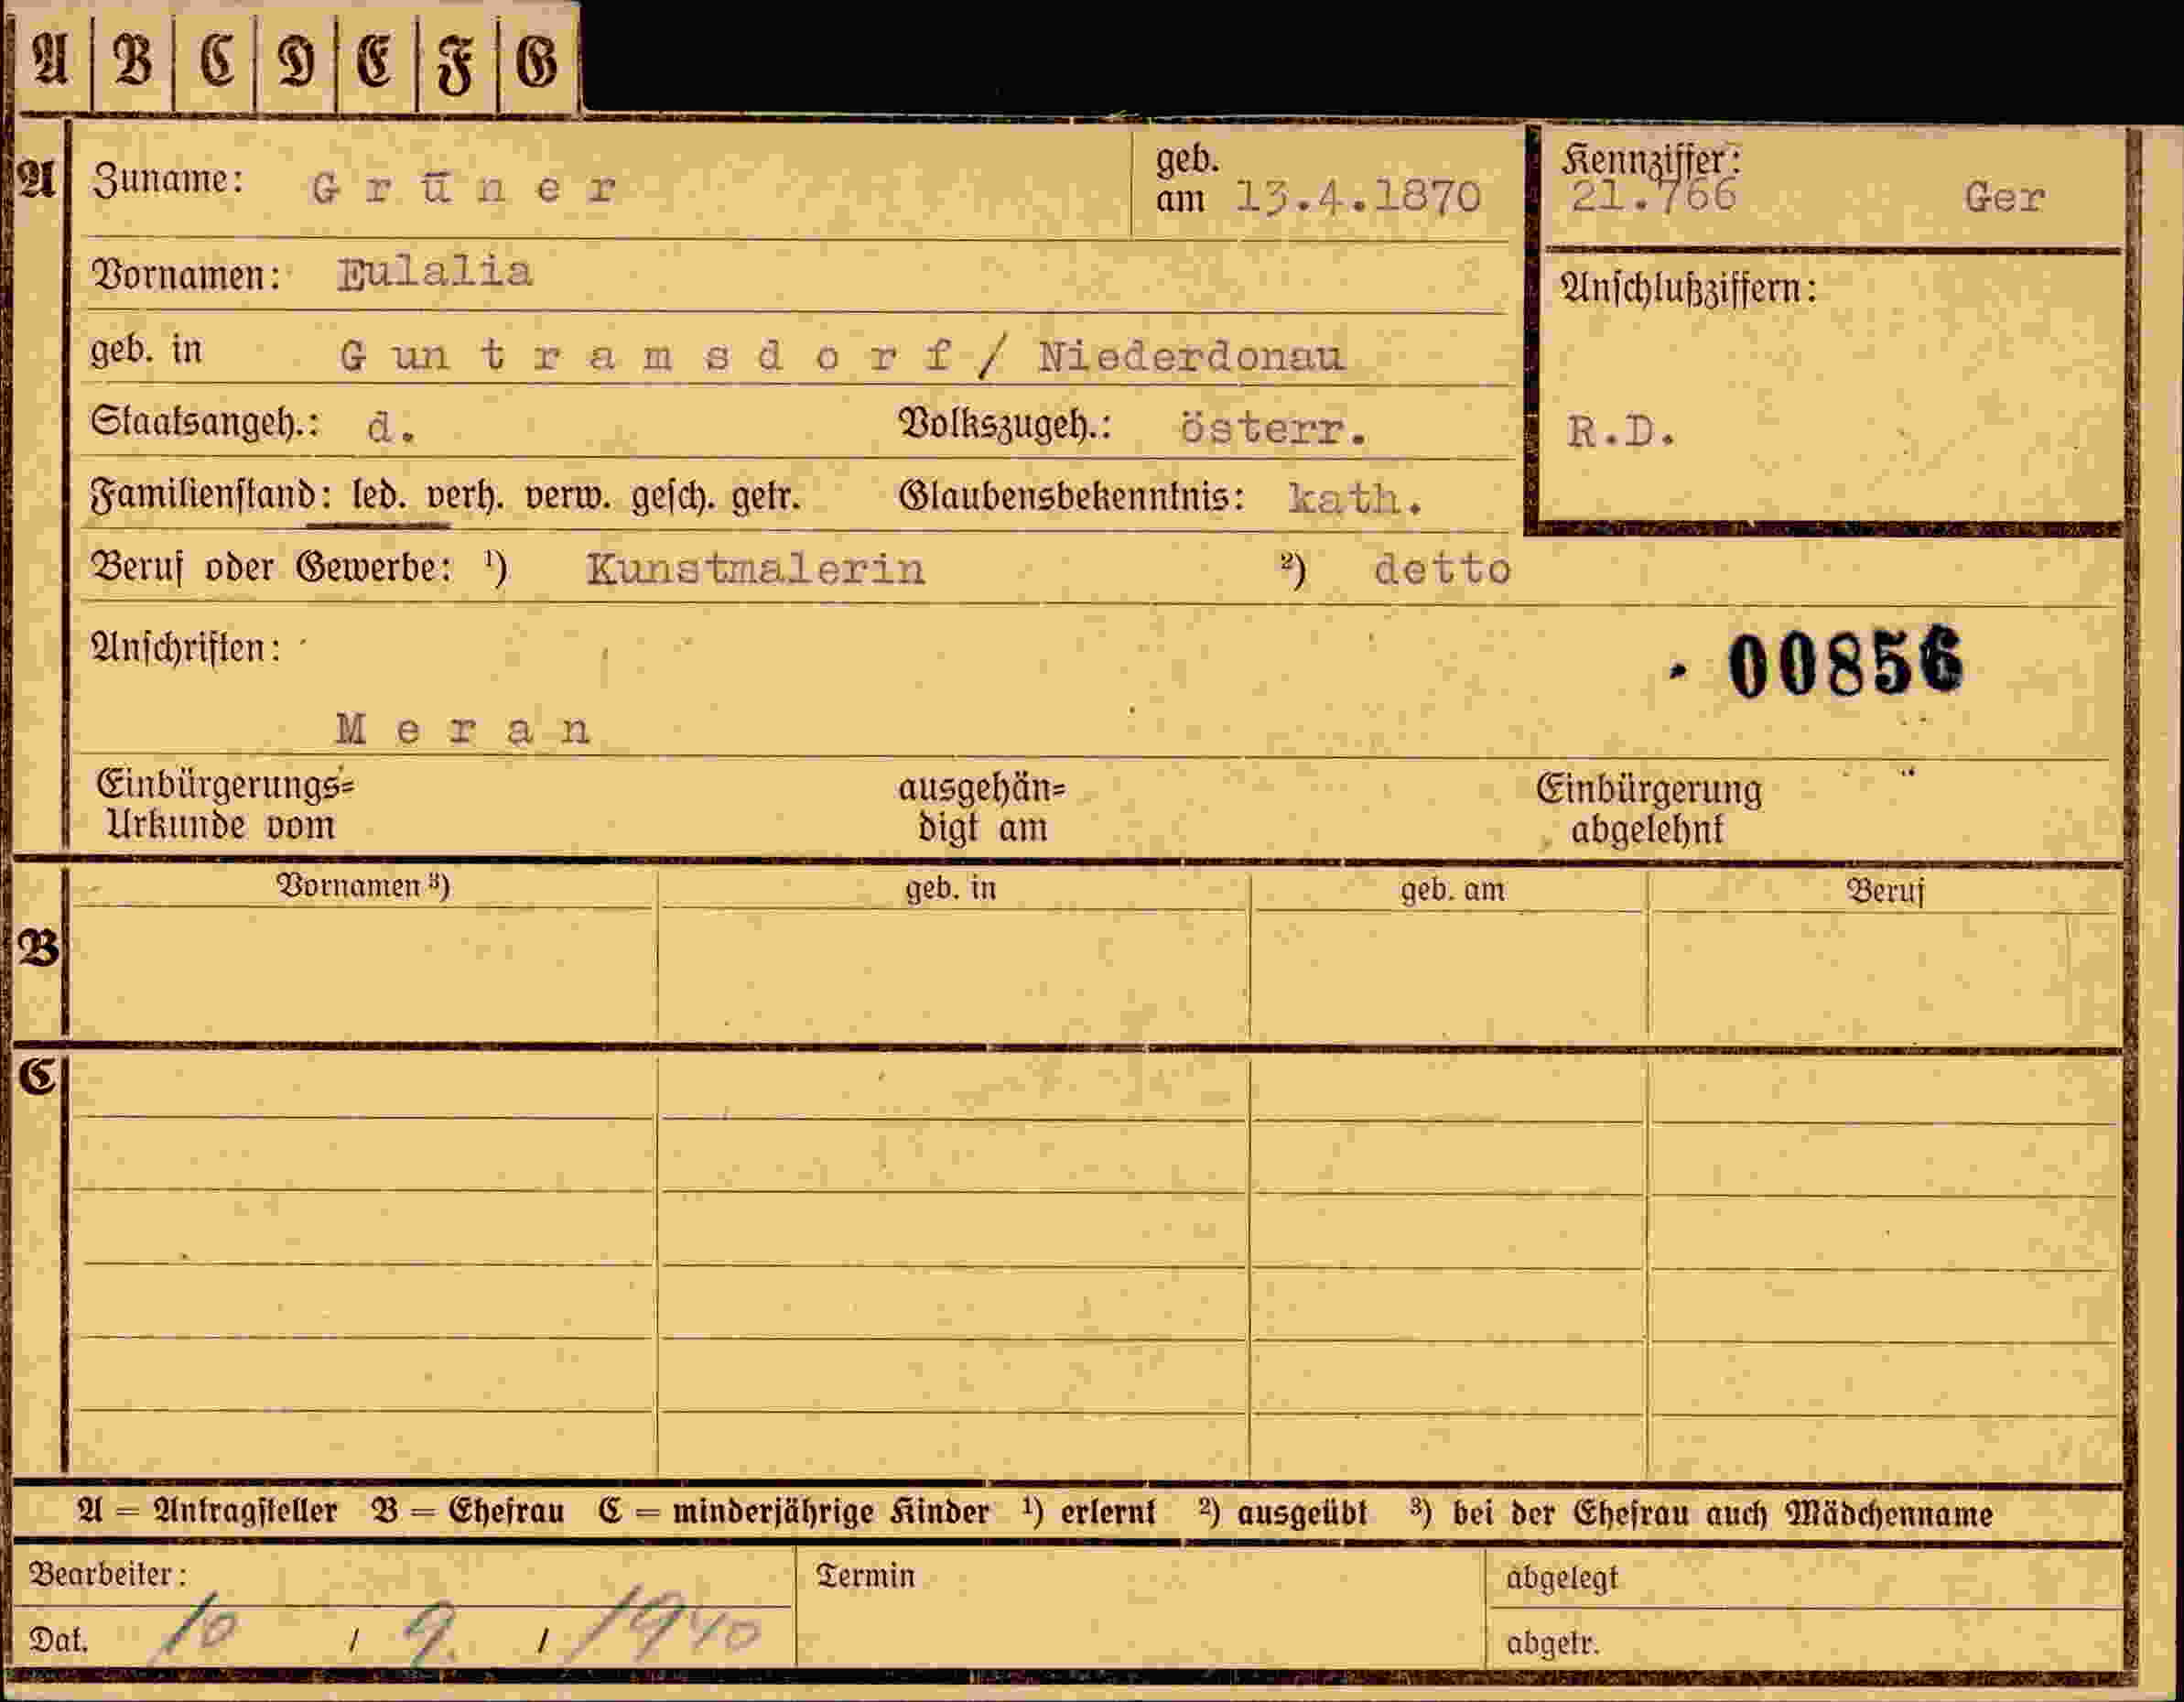 A B C D E F G
A Zuname: G r ü n e r geb. am 13.4.1870 Kennziffer: 21.766 Ger
Vornamen: Eulalia Anschlußziffern:
geb. in G un t r a m s d o r f / Niederdonau
Staatsangeh.: d. Volkszugeh.: österr. R.D.
Familienstand: led. verh. verw. gesch. getr. Glaubensbekenntnis: kath.
Beruf oder Gewerbe: ¹) Kunstmalerin ²) detto
Anschriften: 00856
M e r a n
Einbürgerungs= ausgehän= Einbürgerung
Urkunde vom digt am abgelehnt
Vornamen ³) geb. in geb. am Beruf
B
C
A = Antragsteller B = Ehefrau C = minderjährige Kinder ¹) erlernt ²) ausgeübt ³) bei der Ehefrau auch Mädchenname
Bearbeiter: Termin abgelegt
Dat. 10 / 9. / 1940 abgetr.